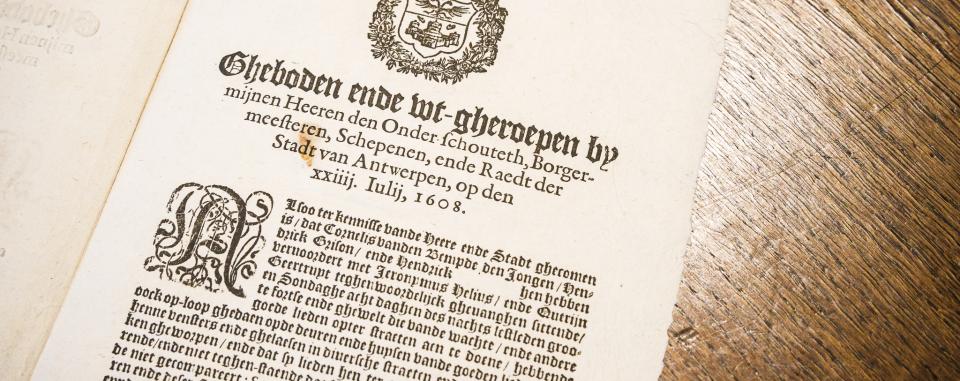 Gheboden ende wt-gheroepen by
mijnen Heeren den Onder-schouteth, Borger-
meesteren, Schepenen, ende Raedt der
Stadt van Antwerpen, op den
xxiiij. Iulij, 1608.
Alsoo ter kennisse vande Heere ende Stadt ghecomen
is / dat Cornelis vanden Bempde den Jongen / Hen-
drick Grison / ende Hendrick hen hebben
vervoordert met Jeronymus Helius / ende Querijn
Geertruyt teghenwoordelijck ghevanghen sittende /
en Sondaghe acht daghen des nachts lestleden groo-
te fortse ende ghewelt die vande wachte / ende andere
goede lieden opter straeten aen te doene / hebbende
oock op-loop ghedaen opde deuren ende huysen vande goeden
henne vensters ende ghelaesen in diversche straeten ende
ken gheworpen / ende dat sy lieden hen ter
rende / ende niet teghen-staende dat
de niet gecompareert
ren ende deser